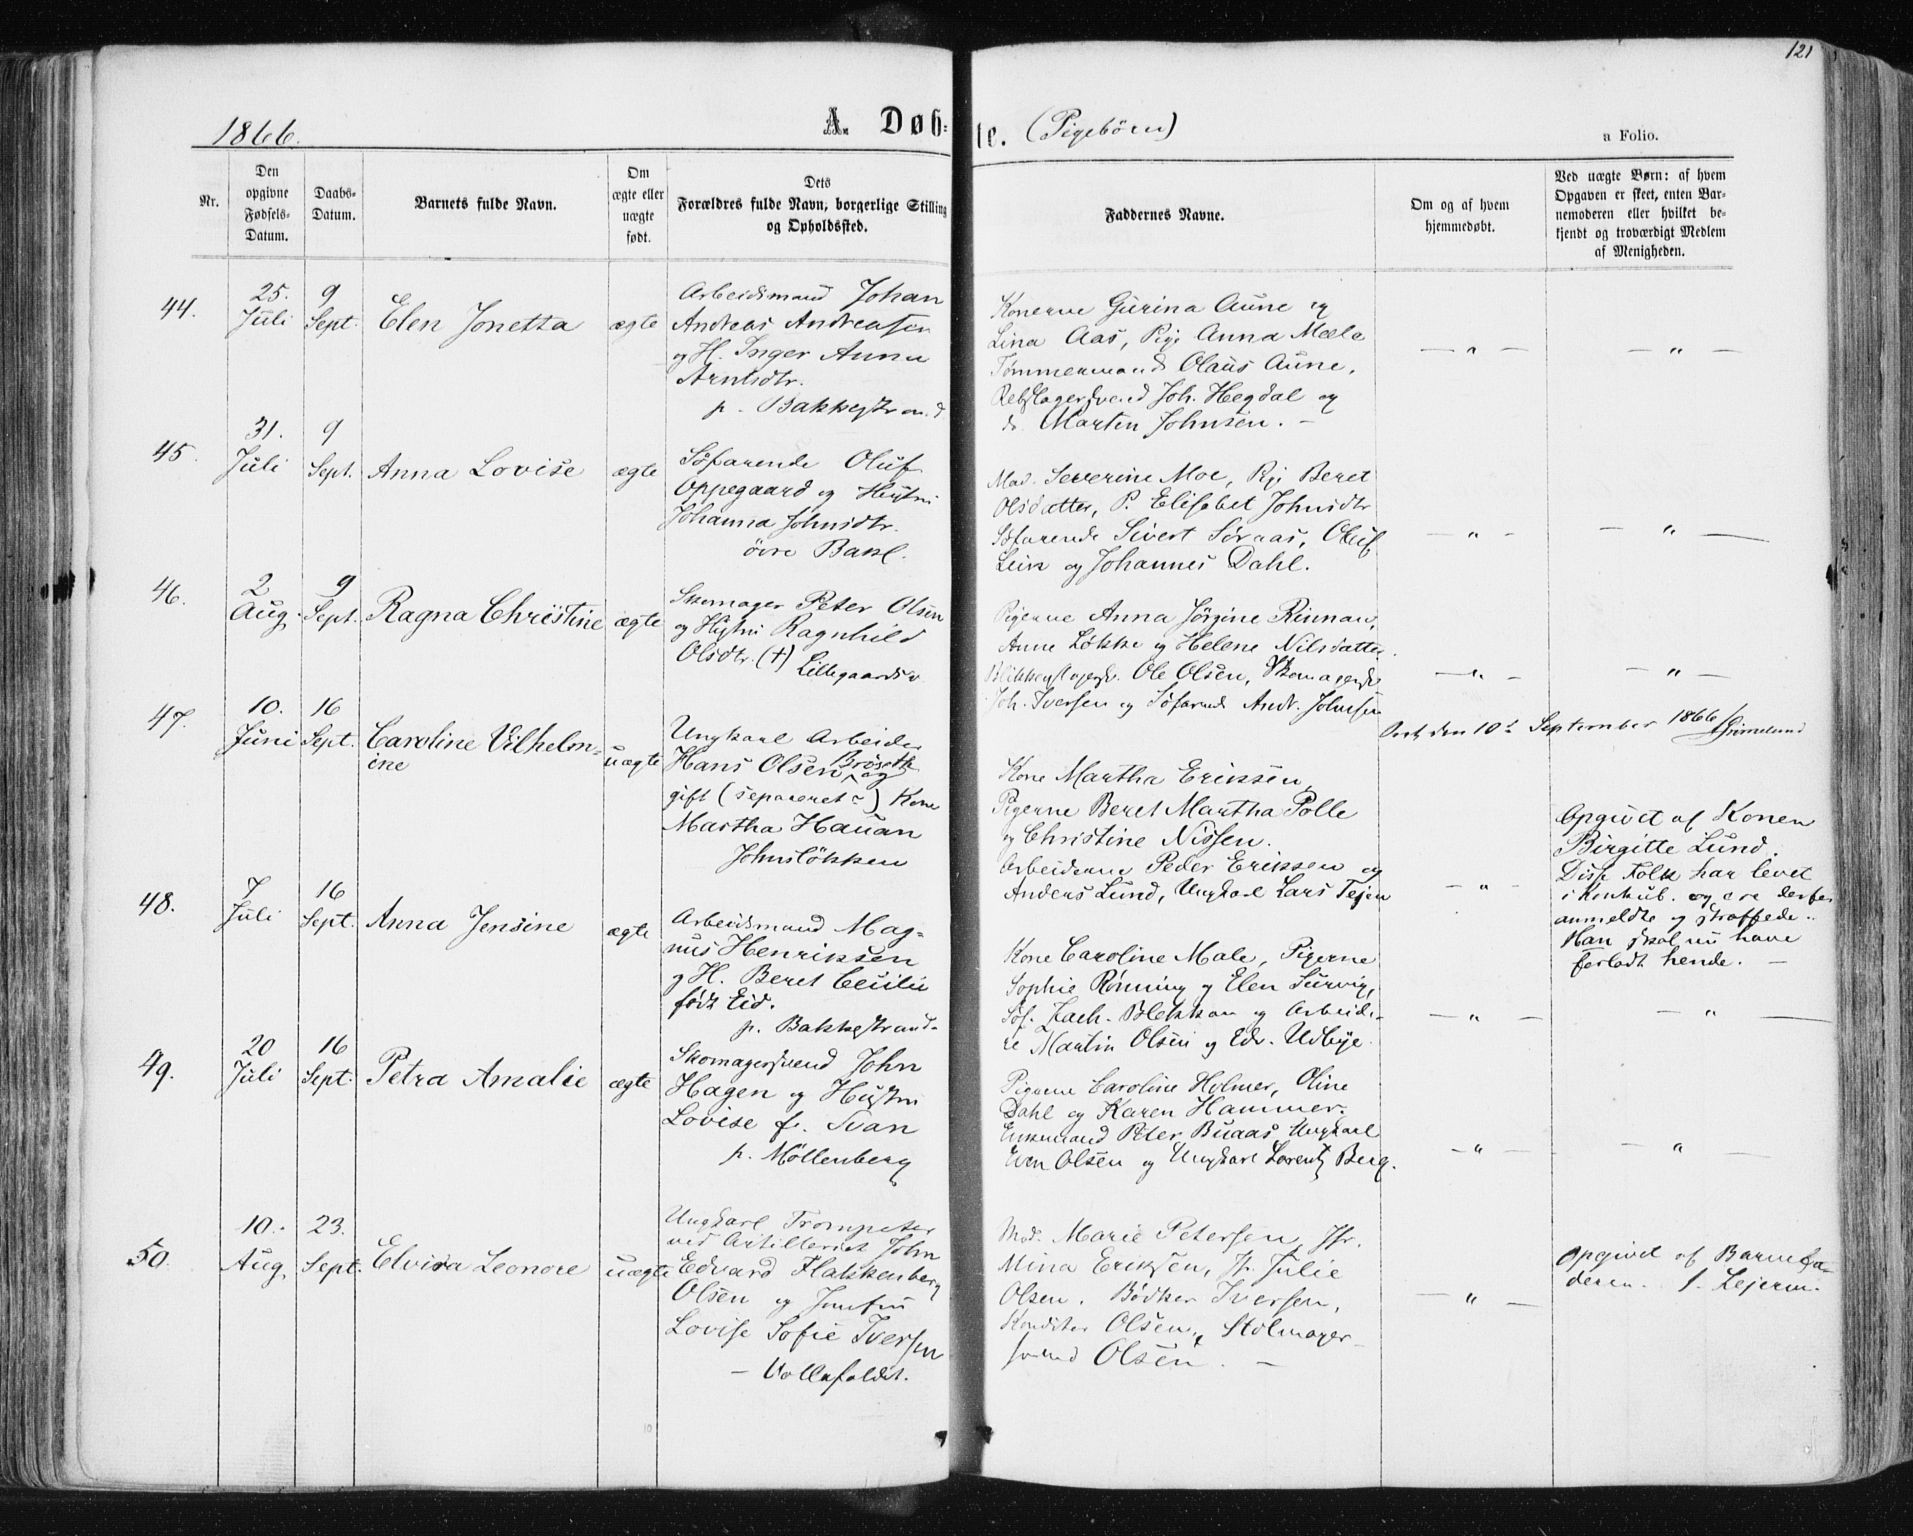 121
1866.
A. Døb=
te. (Pigebörn)
a Folio.
Nr.
Den
opgivne
Fødsels-
Datum.
Daabs-
Datum.
Barnets fulde Navn.
Om
ægte eller
uægte
født.
Dets
Forældres fulde Navn, borgerlige Stilling
og Opholdssted.
Faddernes Navne.
Om og af hvem
hjemmedøbt.
Ved uægte Børn: af hvem
Opgaven er skeet, enten Bar-
nemoderen eller hvilket be-
kjendt og troværdigt Medlem
af Menigheden.
44.
25.
Juli
9
Sept.
Elen Jonetta
ægte
Arbeidsmand Johan
Andreas Andreasen
og H. Inger Anna
Arntsdtr.
p. Bakkestrand
Konerne Gurina Aune og
Lina Aas, Pige Anna Mæle
Tømmermand Olaus Aune,
Rebslagersvend Joh. Hegdal og
do Martin Johnsen. -
— " —
— " —
45.
31.
Juli
9
Sept.
Anna Lovise
ægte
Söfarende Oluf
Oppegaard og Hustru
Johanna Johnsdtr.
övre Bakl.
Mad. Severine Moe, Pig. Beret
Olsdatter, P. Elisabet Johnsdtr
Söfarende Sivert Soraas, Oluf
Lein og Johannes Dahl.
— " —
— " —
46.
2
Aug.
9
Sept.
Ragna Christine
ægte
Skomager Peter Olsen
og Hustru Ragnhild
Olsdtr. (+)
Lillegaardsv
Pigerne Anna Jørgine Rinnan,
Anne Løkke og Helene Nilsdatter.
Ole Olsen,
Joh. Iversen og Söfarende Andr. Johnsen
— " —
— " —
den 10de September 1866 Grimelund
47.
10.
Juni
16
Sept.
Caroline Vilhelm-
ine
uægte
Ungkarl Arbeider
Hans Olsen Brøseth og
gift (separeret -) Kone
Martha Hauan
Johnslökken
Kone Martha Eriksen,
Pigerne Beret Martha Polle
og Christine Nissen.
Arbeiderne Peder Eriksen og
Anders Lund, Ungkarl Lars Tejen
— " —
Opgivet af Konen
Birgitte Lund.
Disse Folk har levet
i Konkub. og ere derfor
anmeldte og straffede.
Han skal nu have
forladt hende. —
48.
7
Juli
16
Sept.
Anna Jensine
ægte
Arbeidsmand Mag-
nus Henriksen
og H. Beret Cecilie
født Eid.
p. Bakkestrand.
Kone Caroline Male, Pigerne
Sophie Rønning og Elen Survig,
Söf. Zach. Blekkan og Arbeide-
re Martin Olsen og Edv. Udbye.
— " —
— " —
49.
20
Juli
16
Sept.
Petra Amalie
ægte
Skomagersvend John
Hagen og Hustru
Lovise f. Svan
p. Möllenberg
Pigerne Caroline Holmer, Oline
Dahl og Karen Hammer.
Enkemand Peter Buaas, Ungkarl
Even Olsen og Ungkarl Lorentz Berg.
— " —
— " —
50.
10.
Aug.
23.
Sept.
Elvira Leonore
uægte
Ungkarl Trompeter
ved Artilleriet John
Edvard Flakkenberg
Olsen og Jomfru
Lovise Sofie Iversen
— Vollafaldet.
Mad. Marie Petersen, Jfr.
Mina Eriksen, Jf. Julie
Olsen. Bödker Iversen,
Konditor Olsen, Stolmager-
svend Olsen. —
— " —
Opgivet af Barnefa-
deren. 1. Lejerm.